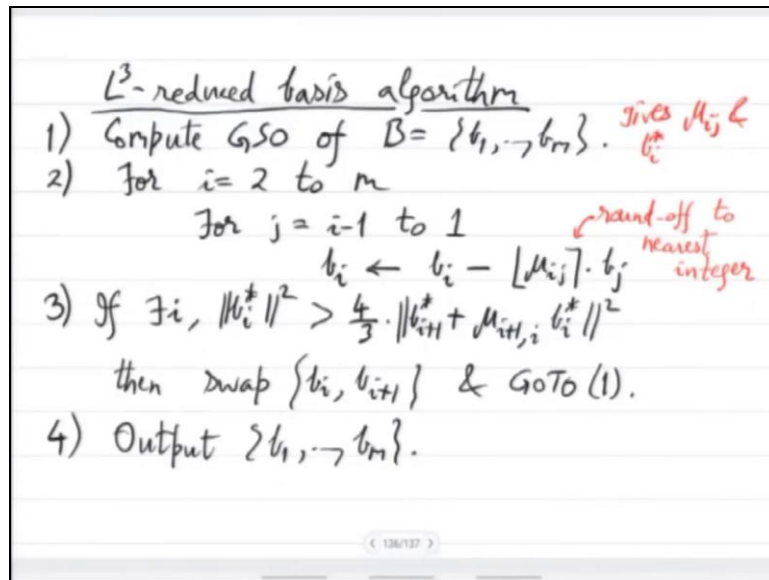 L³-reduced basis algorithm
1) Compute GSO of B = {b₁,..,bₘ}. gives μᵢⱼ & bᵢ*
2) For i = 2 to m
For j = i-1 to 1
round-off to nearest integer
bᵢ ← bᵢ - ⌊μᵢⱼ⌉ · bⱼ
3) If ∃i, ‖bᵢ*‖² > 4/3 · ‖bᵢ₊₁* + μᵢ₊₁,ᵢ bᵢ*‖²
then swap {bᵢ, bᵢ₊₁} & GOTO (1).
4) Output {b₁,..,bₘ}.
< 136/137 >